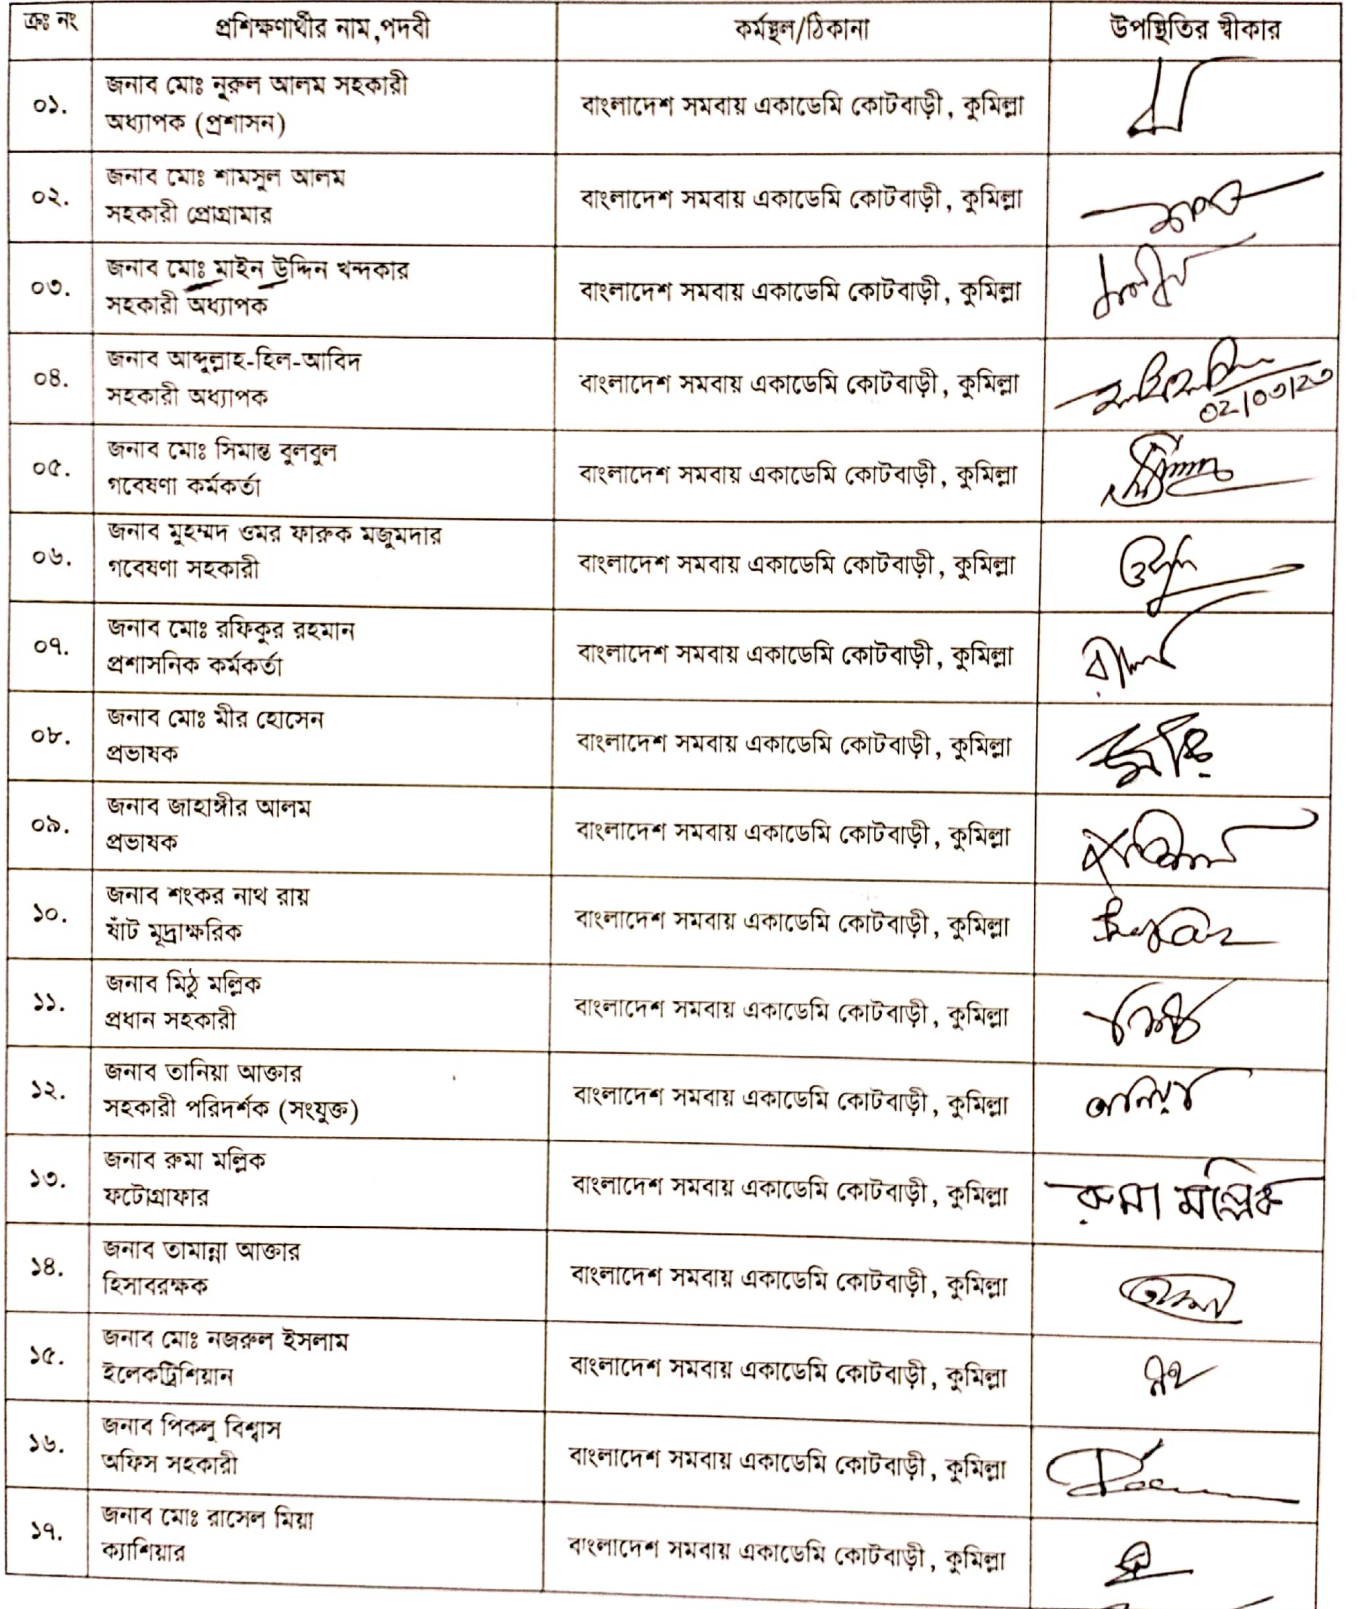 ক্রঃ নং
প্রশিক্ষণার্থীর নাম,পদবী
কর্মস্থল/ঠিকানা
উপস্থিতির স্বীকার
০১.
জনাব মোঃ নূরুল আলম সহকারী
অধ্যাপক (প্রশাসন)
বাংলাদেশ সমবায় একাডেমি কোটবাড়ী, কুমিল্লা
০২.
জনাব মোঃ শামসুল আলম
সহকারী প্রোগ্রামার
বাংলাদেশ সমবায় একাডেমি কোটবাড়ী, কুমিল্লা
০৩.
জনাব মোঃ মাইন উদ্দিন খন্দকার
সহকারী অধ্যাপক
বাংলাদেশ সমবায় একাডেমি কোটবাড়ী, কুমিল্লা
০৪.
জনাব আব্দুল্লাহ-হিল-আবিদ
সহকারী অধ্যাপক
বাংলাদেশ সমবায় একাডেমি কোটবাড়ী, কুমিল্লা
০২/০৩/২৩
০৫.
জনাব মোঃ সিমান্ত বুলবুল
গবেষণা কর্মকর্তা
বাংলাদেশ সমবায় একাডেমি কোটবাড়ী, কুমিল্লা
০৬.
জনাব মুহম্মদ ওমর ফারুক মজুমদার
গবেষণা সহকারী
বাংলাদেশ সমবায় একাডেমি কোটবাড়ী, কুমিল্লা
০৭.
জনাব মোঃ রফিকুর রহমান
প্রশাসনিক কর্মকর্তা
বাংলাদেশ সমবায় একাডেমি কোটবাড়ী, কুমিল্লা
০৮.
জনাব মোঃ মীর হোসেন
প্রভাষক
বাংলাদেশ সমবায় একাডেমি কোটবাড়ী, কুমিল্লা
০৯.
জনাব জাহাঙ্গীর আলম
প্রভাষক
বাংলাদেশ সমবায় একাডেমি কোটবাড়ী, কুমিল্লা
১০.
জনাব শংকর নাথ রায়
ষাঁট মূদ্রাক্ষরিক
বাংলাদেশ সমবায় একাডেমি কোটবাড়ী, কুমিল্লা
১১.
জনাব মিঠু মল্লিক
প্রধান সহকারী
বাংলাদেশ সমবায় একাডেমি কোটবাড়ী, কুমিল্লা
১২.
জনাব তানিয়া আক্তার
সহকারী পরিদর্শক (সংযুক্ত)
বাংলাদেশ সমবায় একাডেমি কোটবাড়ী, কুমিল্লা
তানিয়া
১৩.
জনাব রুমা মল্লিক
ফটোগ্রাফার
বাংলাদেশ সমবায় একাডেমি কোটবাড়ী, কুমিল্লা
রুমা মল্লিক
১৪.
জনাব তামান্না আক্তার
হিসাবরক্ষক
বাংলাদেশ সমবায় একাডেমি কোটবাড়ী, কুমিল্লা
১৫.
জনাব মোঃ নজরুল ইসলাম
ইলেকট্রিশিয়ান
বাংলাদেশ সমবায় একাডেমি কোটবাড়ী, কুমিল্লা
১৬.
জনাব পিকলু বিশ্বাস
অফিস সহকারী
বাংলাদেশ সমবায় একাডেমি কোটবাড়ী, কুমিল্লা
১৭.
জনাব মোঃ রাসেল মিয়া
ক্যাশিয়ার
বাংলাদেশ সমবায় একাডেমি কোটবাড়ী, কুমিল্লা